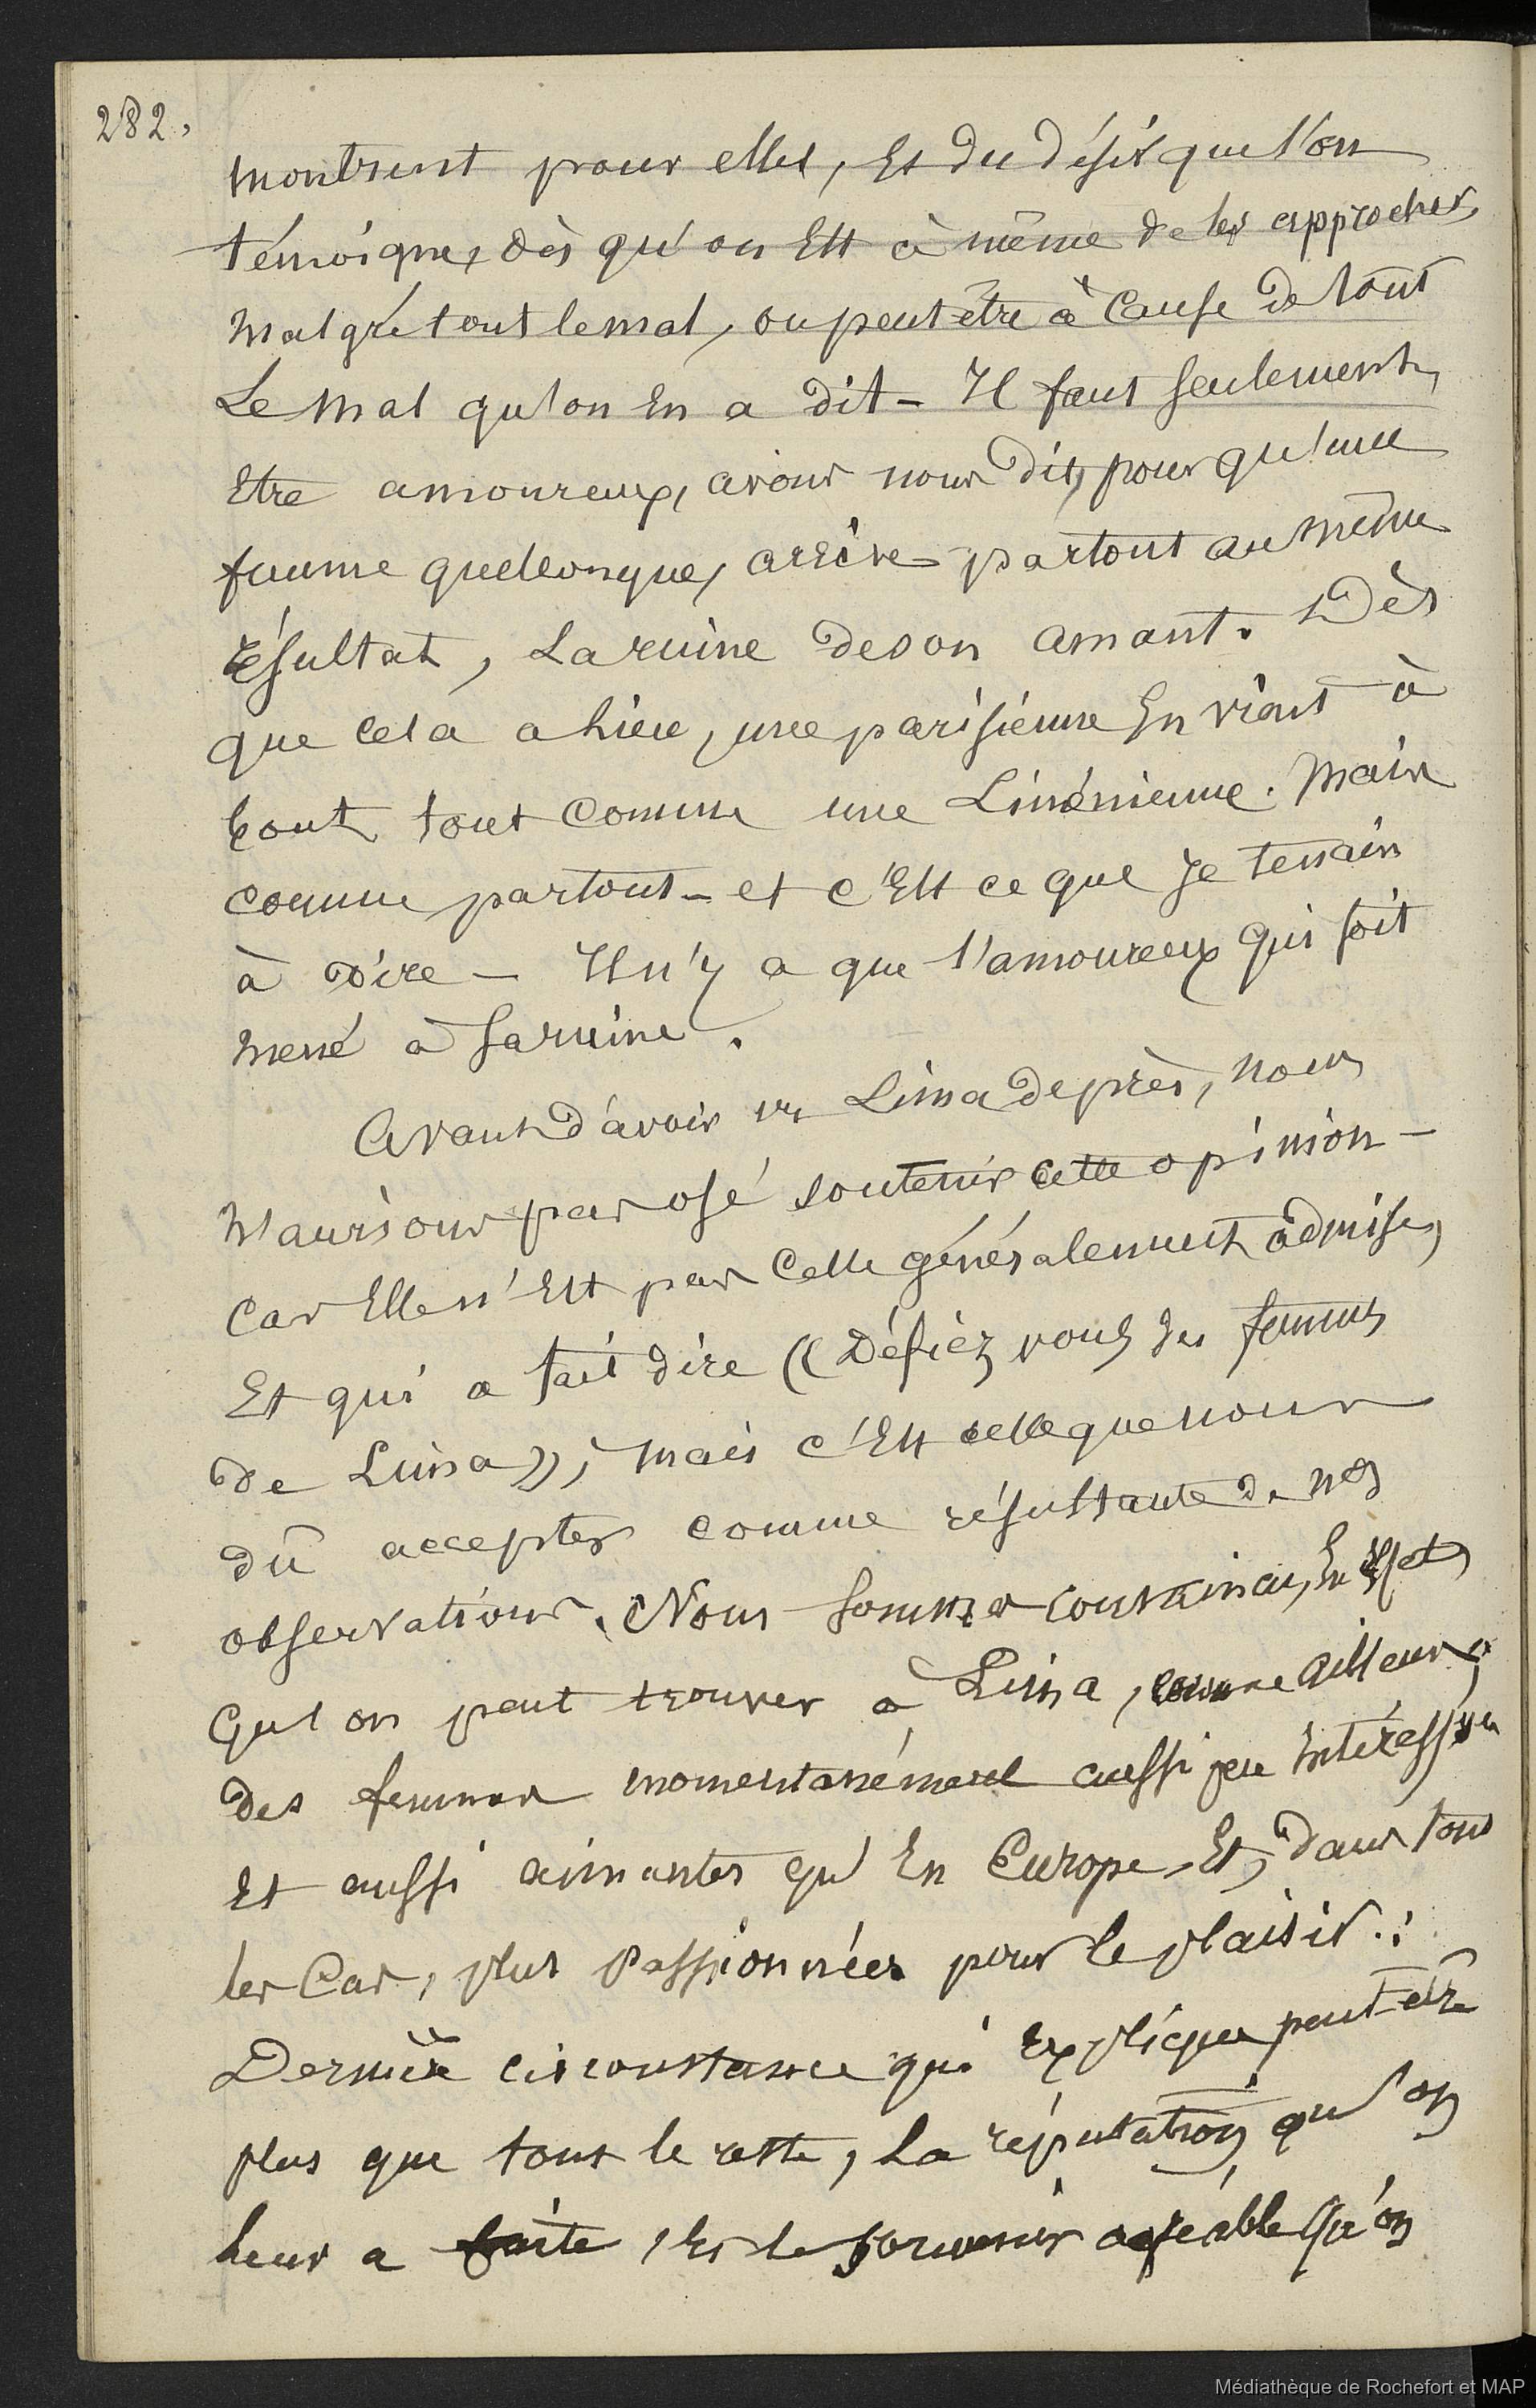 282.
montrent pour elles, Et du désir que l'on
témoigne, dès qu'on Est à même de les approcher,
Malgré tout le mal, ou peut être à Cause de tout
Le mal qu'on En a dit - Il faut seulement,
Etre amoureux, avons nous dit, pour qu'une
femme quelconque, arrive partout au même
résultat, La ruine de son amant. Dès
que cela a lieu, une parisienne En vient à
bout tout comme une Liménienne. Mais
comme partout - et c'Est ce que Je tenais
à dire - Il n'y a que l'amoureux qui soit
mené à sa ruine.
Avant d'avoir vu Lima de près, nous
N'aurions pas osé soutenir cette opinion -
Car Elle n'Est pas Celle généralement admise,
Et qui a fait dire « Défiez vous des femmes
de Lima », mais c'Est celle que nous
dû accepter comme résultante de nos
observations. Nous sommes convaincu, En Effet,
Qu'on peut trouver à Lima, comme ailleurs,
des femmes momentanément aussi peu Intéressées
Et aussi aimantes qu'En Europe, Et, dans tous
les Cas, plus Passionnées pour le plaisir :
Dernière circonstance qui Explique peut être
plus que tout le reste, La réputation qu'on
leur a faite, Et le souvenir agréable Qu'on
Médiathèque de Rochefort et MAP